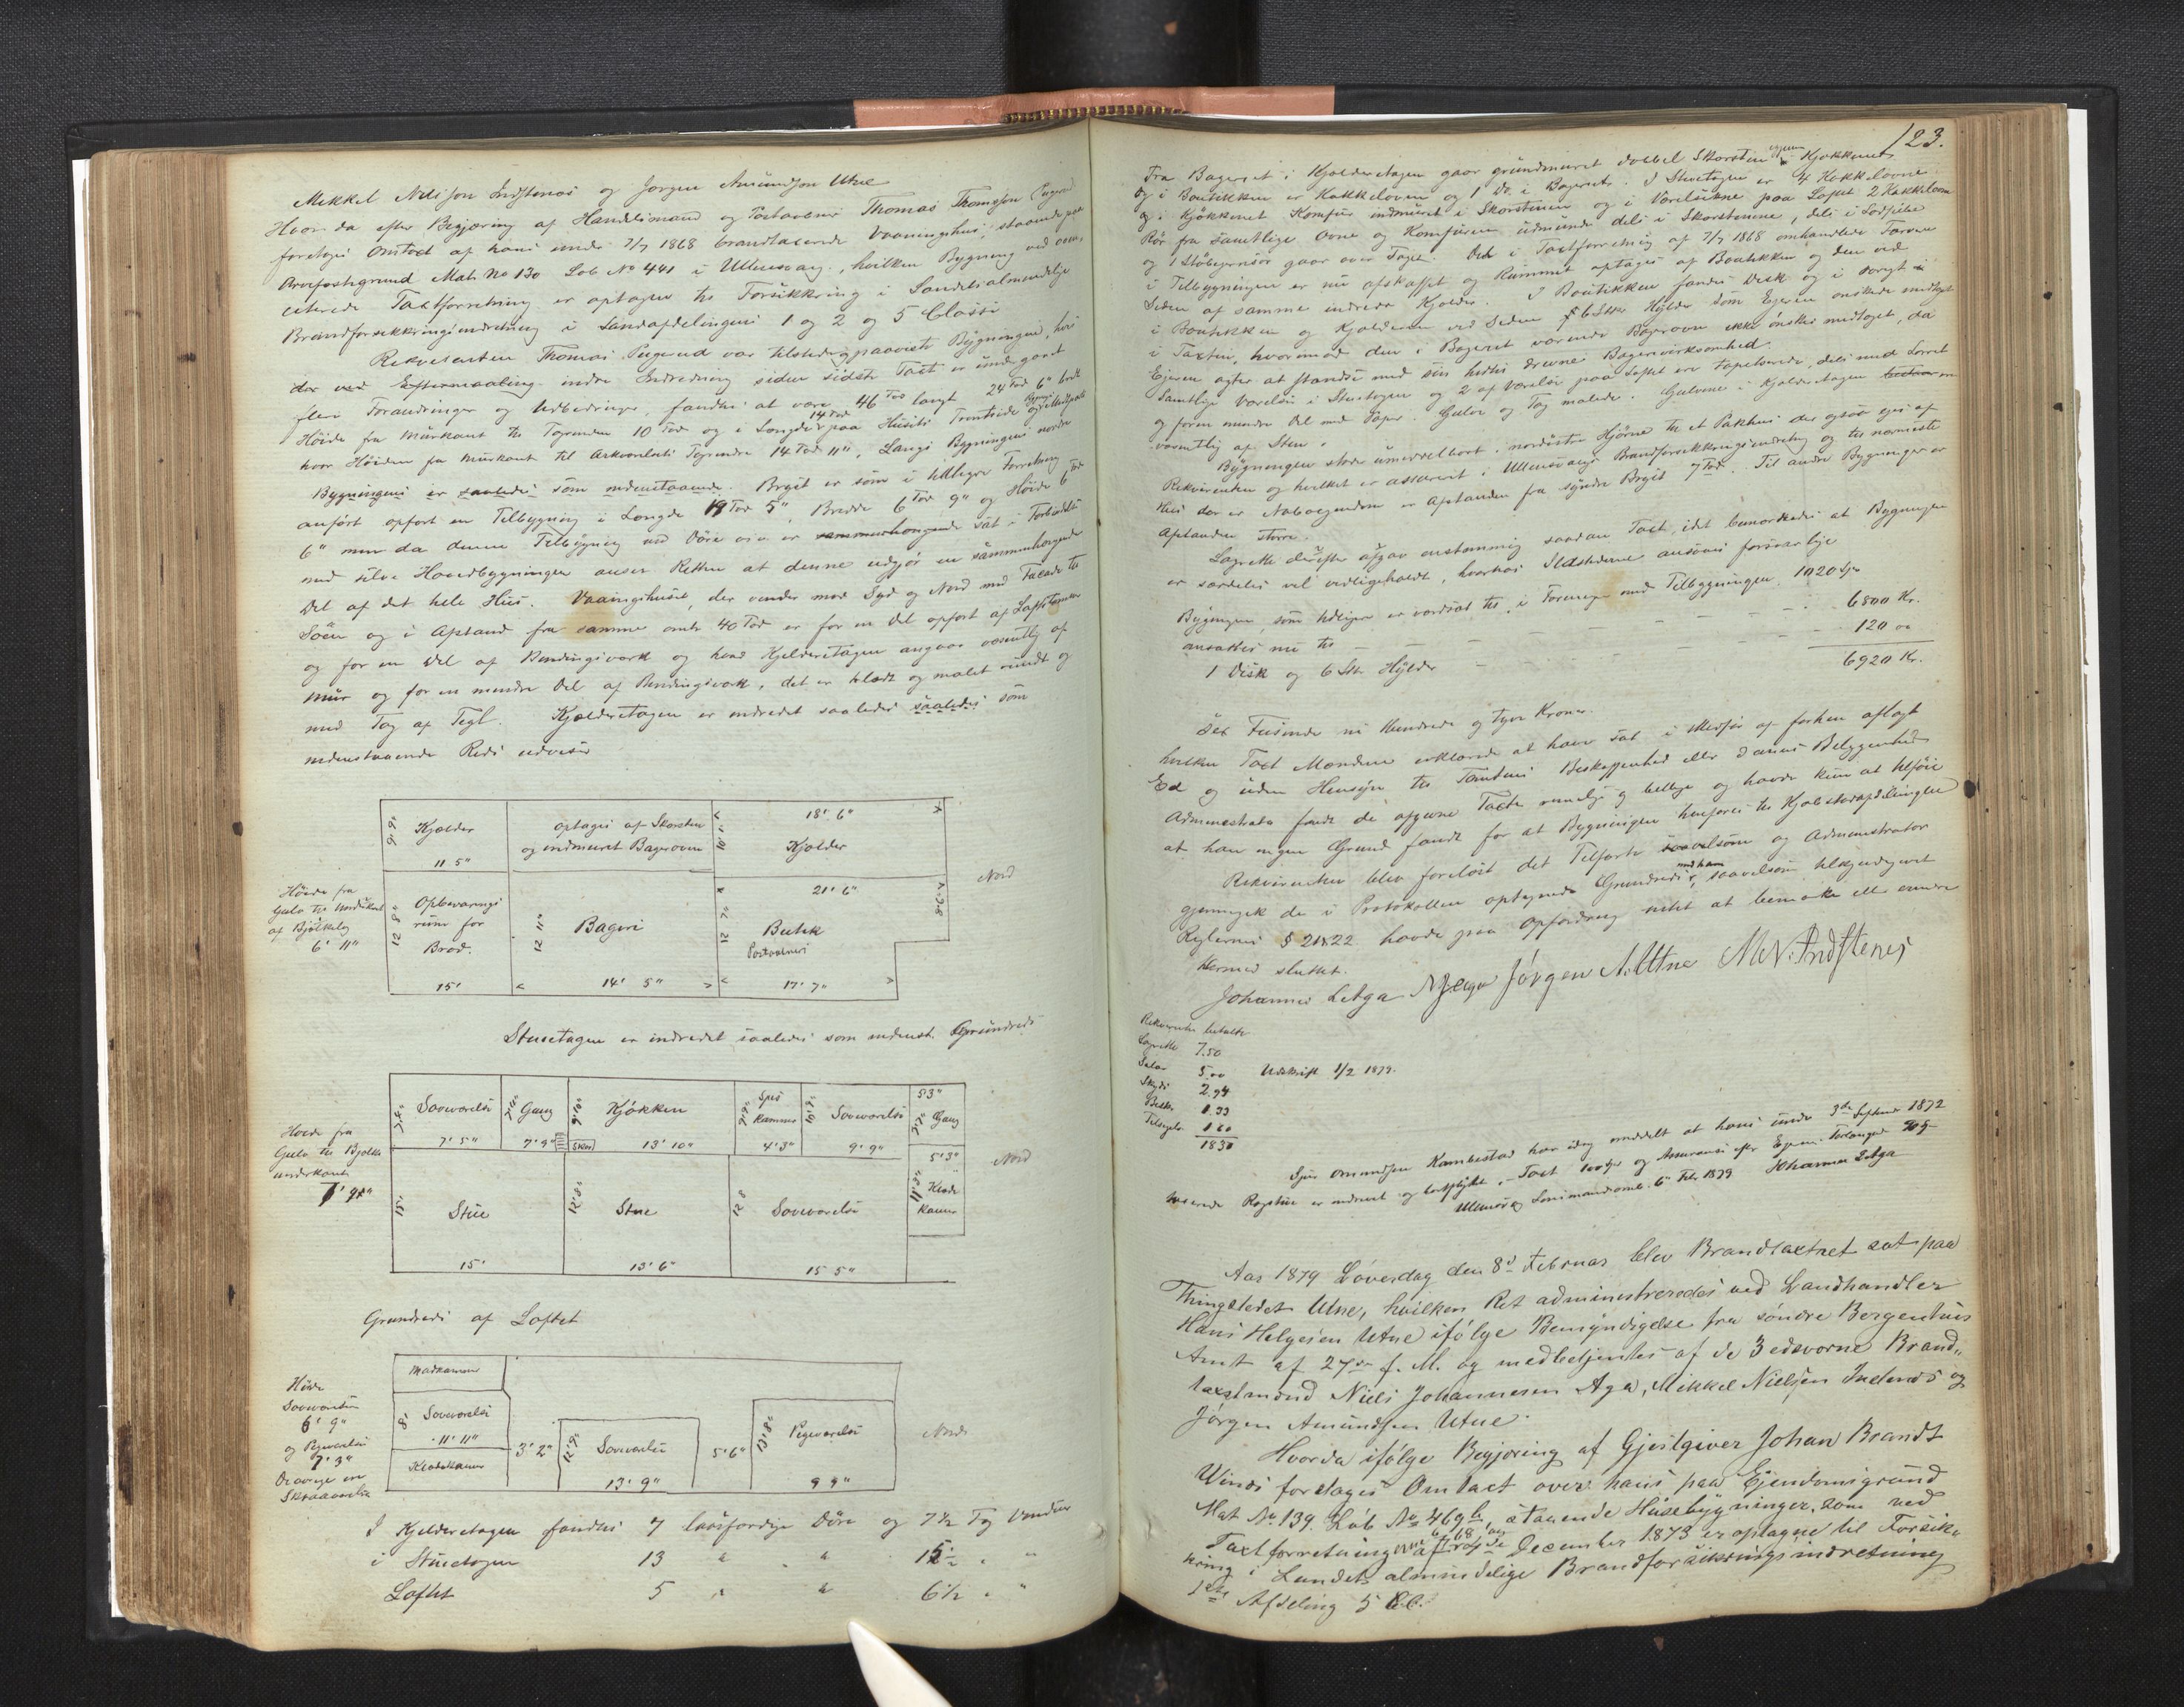 Mikkel Nilsson Indstenæs og Jørgen Amundsen Utne
Hvor da efter Begjæring af Handelsmand og Postaabner Thomas Thomsson
foretoges Omtaxt af hans under 7/7 1868 brandtaxerede Vaaningshus, staaende paa
Arvefæstegrund Mat. No 130 Løb No 441 i Ullensvang, hvilken Bygning ved oven
citerede Taxtforretning er optagen til Forsikkring i Landets almindelige
Brandforsikkringsindretning i Landafdelingens 1 og 2 og 5 Classe
Rekvirenten Thomas var tilstede paaviste Bygningen, hvis
der ved Eftermaaling indre Indredning siden sidste Taxt er undergaaet
flere Forandringer og Udbedringer, fandtes at være 46 Fod langt 24 Fod 6" bredt
Høide fra Murkant til Tagrenden 10 Fod og i Længde 14 Fod paa Husets
hvor Høiden fra Murkant til Arkværelsets Tagrende 14 Fod 11", Langs Bygningens nordre
Bygningens er saaledes som nedenstaaende. Bryst er som i tidligere Forretning
anført opført en Tilbygning i Længde 19 Fod 5", Bredde 6 Fod 9" og Høide 6 Fod
6" men da denne Tilbygning ved Døre er sammenhængende sat i Forbindelse
med selve Hovedbygningen anser Retten at denne udgjør en sammenhængende
Del af det hele Hus. Vaaningshuset, der vender mod Syd og Nord med Facade til
Søen og i Afstand fra samme omtr 40 Fod er for en Del opført af Laftetømmer
og for en Del af Bindingsværk og hvad Kjelderetagen angaar væsentlig af
Mur og for en mindre Del af Bindingsværk, det er klædt og malet rundt og
med Tag af Tegl. Kjælderetagen er indredet saaledes saaledes som
nedenstaaende Rids udviser
Kjælder
9' 9"
11 5"
optages af Skorsten
og indmuret Bagerovn
18' 6"
Kjælder
Nord
Høide fra
Gulv til Underkant
af Bjelkelag
6' 11"
Opbevarings
rum for
Brød.
12 8"
15'
Bageri
12 11"
14' 5"
21' 6"
12 7"
Butik
Postaabneri
17' 7"
Stuetagen er indredet saaledes som nedenst. Grundrids
Soveværelse
7' 5"
Gang
7' 9"
Kjøkken
13' 10"
Skor
Spis
kammer
4' 3"
Soveværelse
9' 9"
5' 3"
Gang
Høide fra
Gulv til Bjelke
underkant
7' 9½"
Nord
5' 3"
Klæde
kamer
Stue
15'
15'
Stue
12' 8"
13' 6"
Soveværelse
12 8
15 5"
Grundrids af Loftet
Madkammer
Høide
Soveværelse
6' 9"
og Pigeværelse
7' 3"
Øvrige ere
Skraaværelse
8'
Soveværelse
11' 11"
Klædekamer
3' 2"
12' 9"
Soveværelse
13' 9"
5' 6"
13' 8"
Pigeværelse
9 9"
Nord
I Kjelderetagen fandtes 7 laasfærdige Døre og 7½ Fag Vinduer
i Stuetagen 13 " " 15½ " "
Loftet 5 " " 6½ " "
123.
Fra Bageriet i Kjælderetagen gaar grundmuret dobbel Skorsten igjennem Kjøkkenet
og i Boutikken er Kakkelovn og 1 Do i Bageriet. I Stuetagen er 4 Kakkelovne
og i Kjøkkenet Komfur indmuret i Skorstenen og i Værelserne paa Loftet 2 Kakkelovne
Rør fra samtlige Ovne og Komfuren udmunde dels i Skorstenene, dels i
og 1 Støbejernsrør gaar over Taget. Det i Taxtforretning af 7/7 1868 omhandlede
i Tilbygningen er nu afskaffet og Rummet optages af Boutikken og den ved
Siden af samme indrede Kjelder. I Boutikken fandtes Disk og i
i Boutikken og Kjælderen ved Siden 6 Stkr Hylder som Eieren ønskede medtaget
i Taxten, hvorimod den i Bageriet værende Bagerovn ikke ønskes medtaget, da
Eieren agter at standse med sin hidtil drevne Bagerivirksomhed.
Samtlige Værelser i Stuetagen og 2 af Værelserne paa Loftet ere tapetserede, dels med Lerret
og for en mindre Del med Papir. Gulve og Tag malede. Gulvene i Kjælderetagen
væsentlig af Sten.
Bygningen støder umiddelbart i nordøstre Hjørne til et Pakhus der ogsaa eies af
Rekvirenten og hvilket er assureret i Ullensvangs Brandforsikkringsindretning og til nærmeste
Hus der er Naboeiendom er Afstanden fra søndre Bryst 7 Fod. Til andre Bygninger er
Afstanden større.
Lagrette derefter afgav enstemmig saadan Taxt, idet bemærkedes at Bygningen
er særdeles vel vedligeholdt, hvorhos Ildstederne ansaaes forsvarlige
Bygningen, som tidligere er værdsat til, i Forening med Tilbygningen 1020 Spr
ansættes nu til 6800 Kr.
1 Disk og 6 Stkr Hylder 120 "
6920 Kr.
sex Tusinde ni Hundrede og tyve Kroner.
hvilken Taxt Mændene erklærede at have sat i Medfør af forhen aflagt
Ed og uden Hensyn til Tomtens Beskaffenhed eller dennes Beliggenhed
Administrator fandt de afgivne Taxter rimelige og billige og havde kun at tilføie
at han ingen Grund fandt for at Bygningen henføres til Kjøbstadafdelingen
Rekvirenten blev forelæst det Tilførte saavelsom og Administrator
gjennemgik de i Protokollen optegnede Grundrids med ham, saavelsom tilkjendegivet
Reglernes § 21 & 22 havde paa Opfordring intet at bemærke eller erindre
Hermed sluttet.
Johannes L Aga N J Aga Jørgen A. Utne M N. Indstenes
Rekvirenten betalte
Lagrette 7.50
Salær 5.00 Udskrift 1/2 1879.
Skyds 2.94
1.33
1830
Sjur Omundsen Kambestad har idag meddelt at hans under 3de September 1872
Røgstue er nedrevet og bortflyttet, - Taxt 100 Spr og Assurance efter Eierens Forlangende
Ullensvang Lensmandsomb. 6te Febr 1879 Johannes L Aga
Aar 1879 Løverdag den 8de Februar blev Brandtaxtret sat paa
Thingstedet Utne, hvilken Ret administreredes ved Landhandler
Hans Helgesen Utne ifølge Bemyndigelse fra søndre Bergenhus
Amt af 27de f. M. og medbetjentes af de 3 edsvorne Brand„
taxtmænd Niels Johannesen Aga, Mikkel Nielsen Indenes og
Jørgen Amundsen Utne.
Hvorda ifølge Begjæring af Gjestgiver Johan Brandt
Vinæs foretages Omtaxt over hans paa Ejendomsgrund
Mat No 139. Løb No 469 b, staaende Husebygninger, som ved
Taxtforretning December 1873 er optagne til Forsik„
kring i Landets almindelige Brandforsikringsindretning
1ste Afdeling 5 Cl.